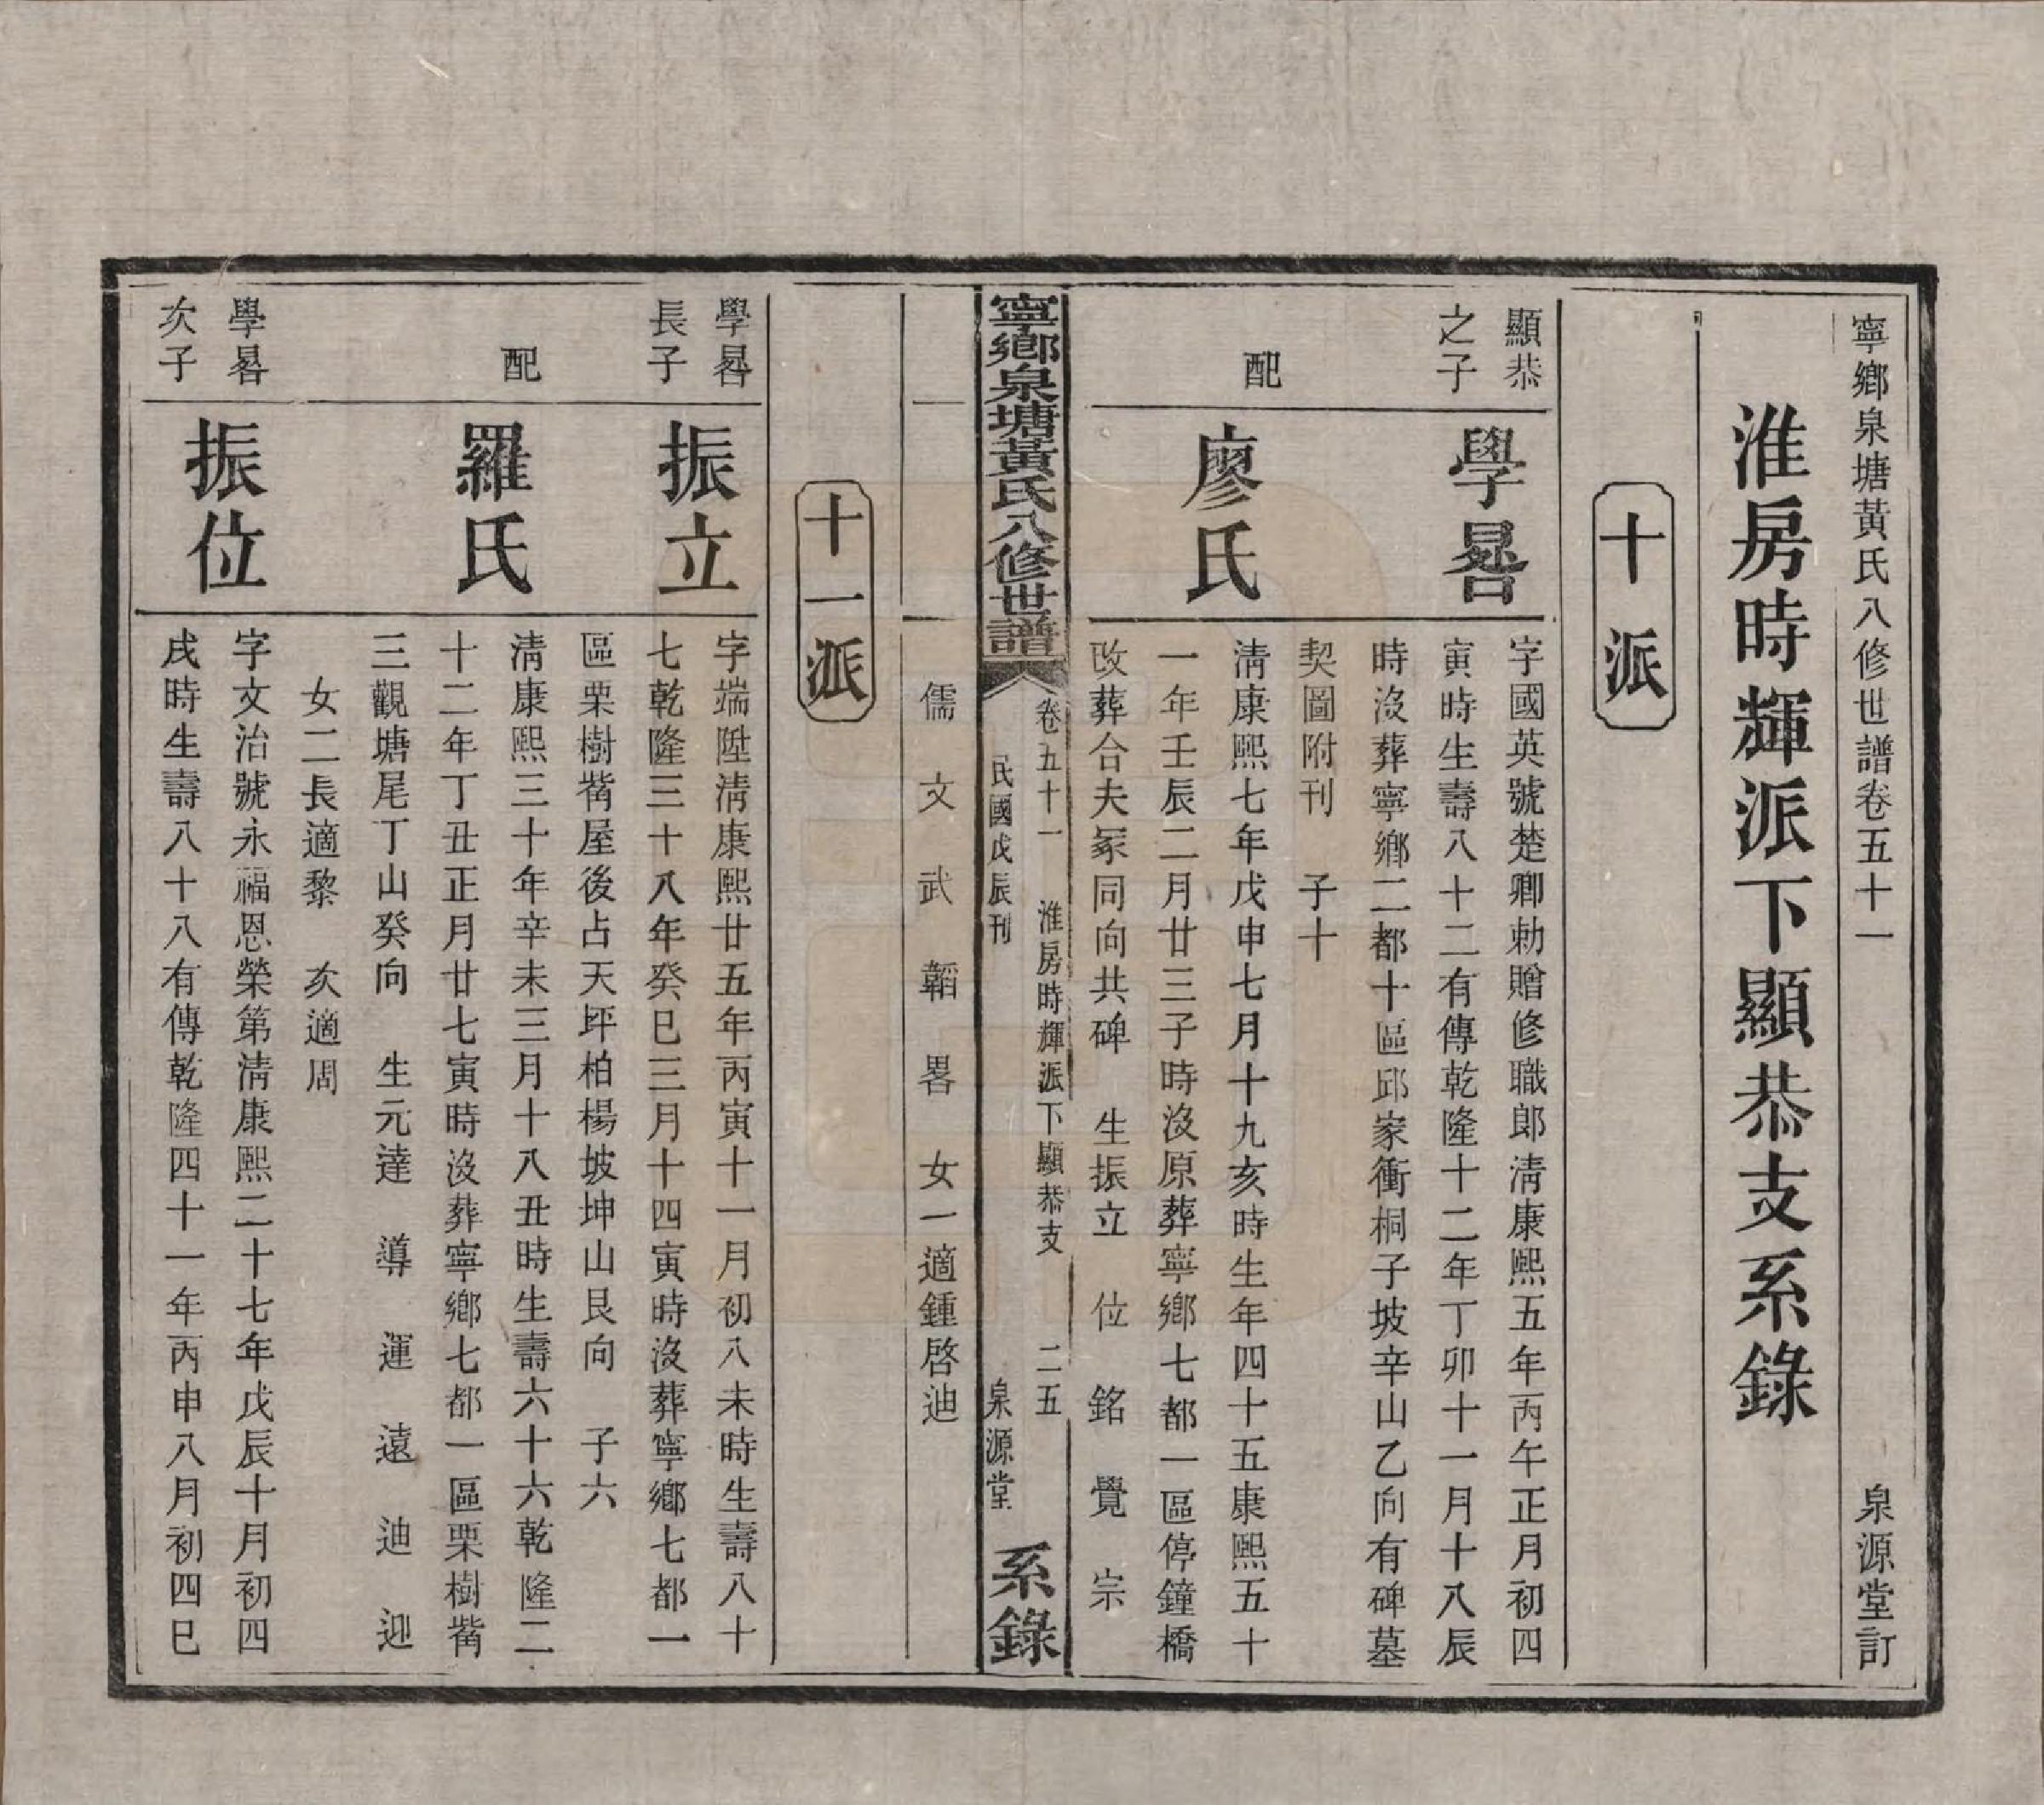 寧鄉泉塘黃氏八修世譜卷五十一 泉源堂訂
淮房時輝派下顯恭支系錄
十派
顯恭
之子
學晷
字國英號楚卿勅贈修職郎淸康熙五年丙午正月初四
寅時生壽八十二有傳乾隆十二年丁卯十一月十八辰
時沒葬寧鄉二都十區邱家衝桐子坡辛山乙向有碑墓
契圖附刊 子十
配
廖氏
淸康熙七年戊申七月十九亥時生年四十五康熙五十
一年壬辰二月廿三子時沒原葬寧鄉七都一區停鐘橋
改葬合夫冢同向共碑 生振立 位 銘 覺 宗
寧鄉泉塘黃氏八修世譜
卷五十一 淮房時輝派下顯恭支 二五
民國戊辰刊 泉源堂
系錄
儒 文 武 韜 畧 女一適鍾啓迪
十一派
學晷
長子
振立
字端陞淸康熙廿五年丙寅十一月初八未時生壽八十
七乾隆三十八年癸巳三月十四寅時沒葬寧鄉七都一
區栗樹觜屋後占天坪柏楊坡坤山艮向 子六
配
羅氏
淸康熙三十年辛未三月十八丑時生壽六十六乾隆二
十二年丁丑正月廿七寅時沒葬寧鄉七都一區栗樹觜
三觀塘尾丁山癸向 生元達 導 運 遠 迪 迎
女二長適黎 次適周
學晷
次子
振位
字文治號永福恩榮第淸康熙二十七年戊辰十月初四
戌時生壽八十八有傳乾隆四十一年丙申八月初四巳